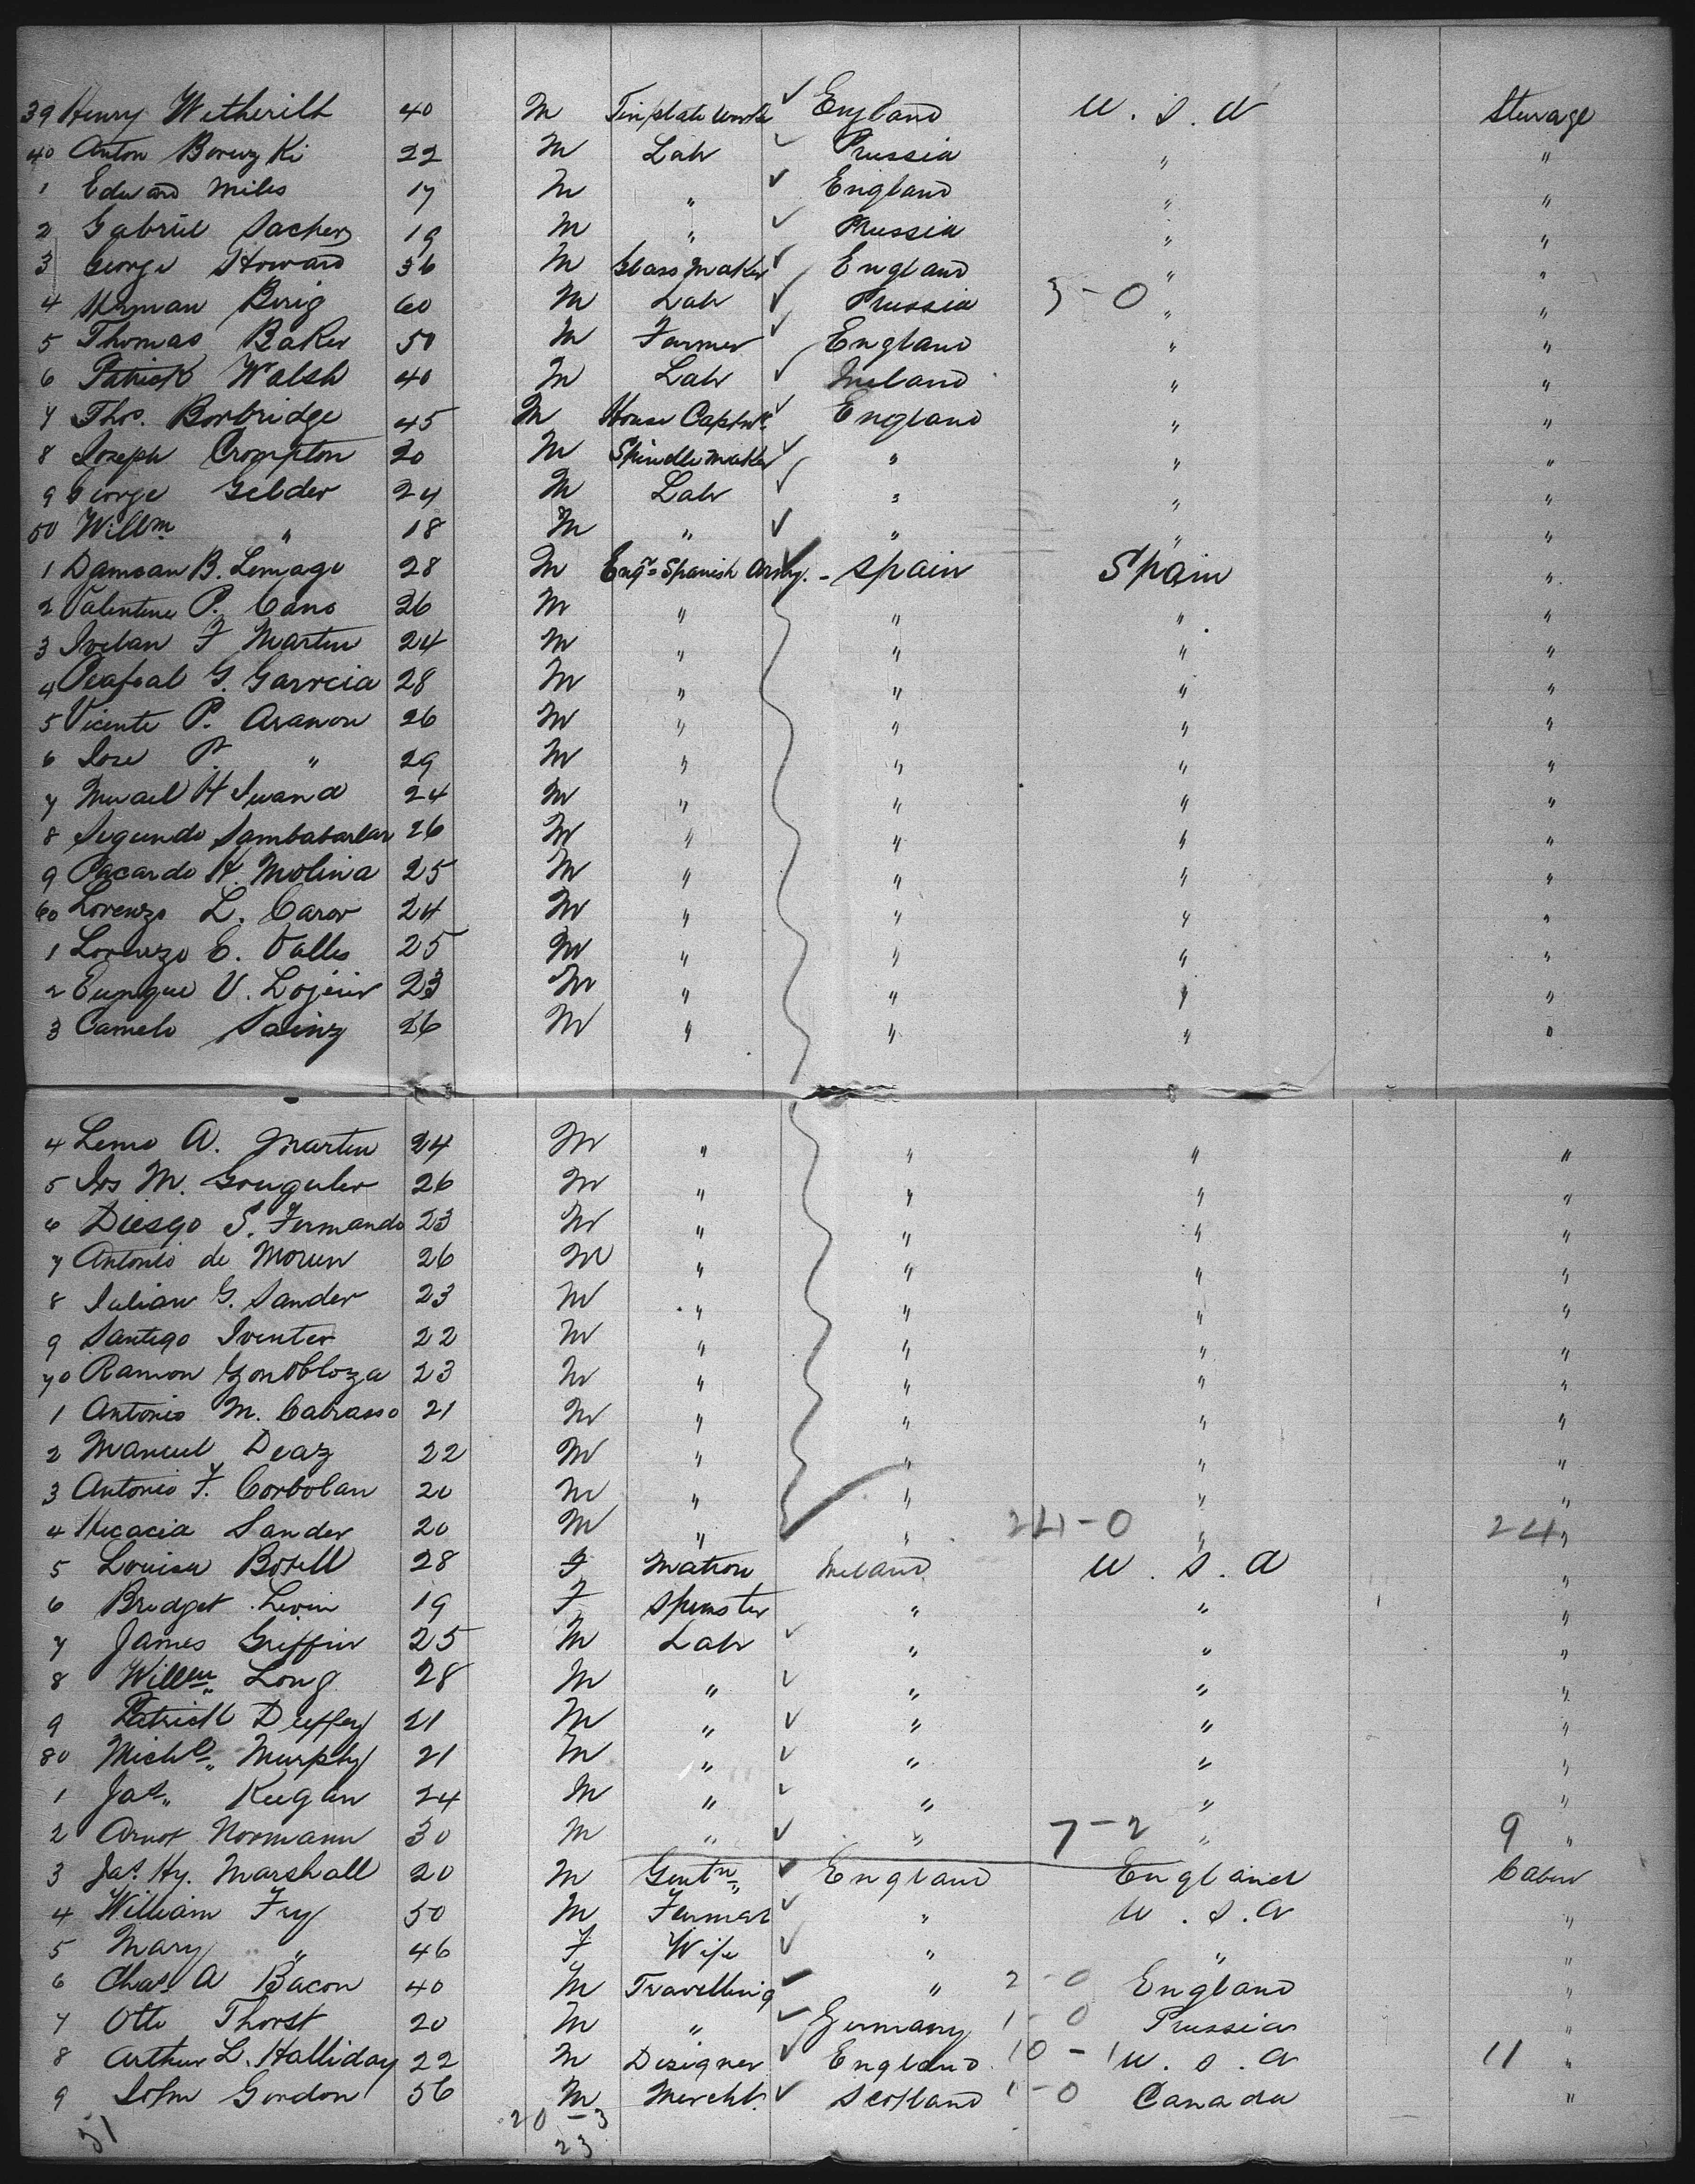 39 Henry Wetherilt 40 M Tinplate Worker England U. S. A Steerage
40 Anton Boruzki 22 M Labr Prussia " "
1 Edward Miles 17 M " England " "
2 Gabriel Sachers 19 M " Russia " "
3 George Howard 36 M Glass Maker England " "
4 Herman Berig 60 M Labr Prussia 3-0 " "
5 Thomas Baker 50 M Farmer England " "
6 Patrick Walsh 40 M Labr Ireland " "
7 Thos. Borbridge 45 M House Captntr England " "
8 Joseph Crompton 20 M Spindle Maker " " "
9 George Gelder 24 M Labr " " "
50 Willm " 18 M " " " "
1 Damian B. Lemago 28 M Engr Spanish Army. Spain Spain "
2 Valentine P. Cano 26 M " " " "
3 Ivelan F Martin 24 M " " " "
4 Peafeal G. Garrcia 28 M " " " "
5 Vicente P. Aranon 26 M " " " "
6 Jose P. " 29 M " " " "
7 H Juana 24 M " " " "
8 Segundo Sambabarlar 26 M " " " "
9 Pacardo H. Molina 25 M " " " "
60 Lorenzo L. Caror 24 M " " " "
1 Lorenzo E. Valles 25 M " " " "
2 Eunique V. Lojeir 23 M " " " "
3 Camelo Sainz 26 M " " " "
4 Leno A. Martin 24 M " " " "
5 Jos M. Gonguler 26 M " " " "
6 Diesgo S. Fermando 23 M " " " "
7 Antonio de Morun 26 M " " " "
8 Julian G. Sander 23 M " " " "
9 Santigo Iventer 22 M " " " "
70 Ramon Gonobloza 23 M " " " "
1 Antonio M. Cabrasso 21 M " " " "
2 Manuel Deaz 22 M " " " "
3 Antonio F. Corbolan 20 M " " " "
4 Hicacia Sander 20 M " " 24-0 " 24 "
5 Louisa Bosell 28 F Matron Ireland U. S. A "
6 Bridget Levin 19 F Spinster " " "
7 James Griffin 25 M Labr " " "
8 Willm Long 28 M " " " "
9 Patrick Duffey 21 M " " " "
80 Michl Murphy 21 M " " " "
1 Jas Keegan 24 M " " " "
2 Arnot Normann 30 M " " 7-2 " 9 "
3 Jas Hy. Marshall 20 M Gentn England England Cabin
4 William Fry 50 M Farmer " U. S. A "
5 Mary " 46 F Wife " " "
6 Chas A Bacon 40 M Travelling " 2-0 England "
7 Otto Thorst 20 M " Germany 1-0 Prussia "
8 Arthur L. Halliday 22 M Disigner England 10-1 U. S. A 11 "
9 John Gordon 56 M Mercht. Scotland 1-0 Canada "
51 20-3
23